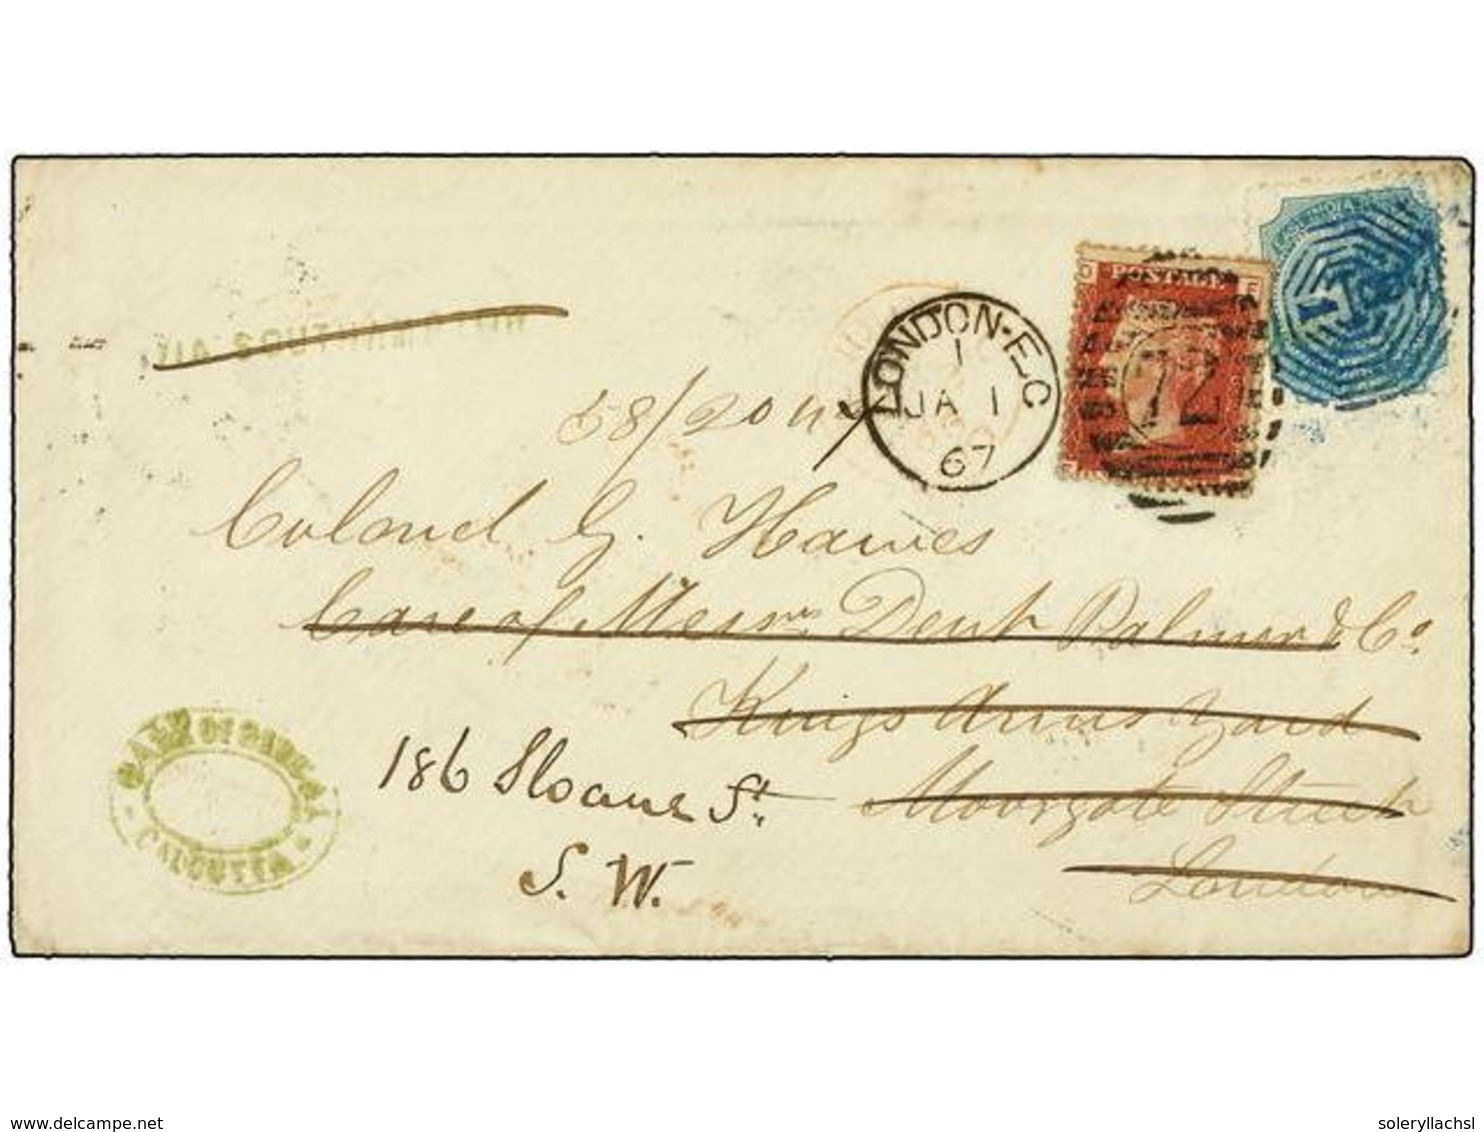 EAST INDIA
1
POSTAGE
O F
72
LONDON-E.C
1
JA 1
67
58/20
Colonel G. Hawes
Care of Messrs Dent Palmer & Co.
Kings Arms Yard
186 Sloane St. Moorgate Street
S. W. London
BANK OF BENGAL
CALCUTTA
www.delcampe.net
soleryllachsl